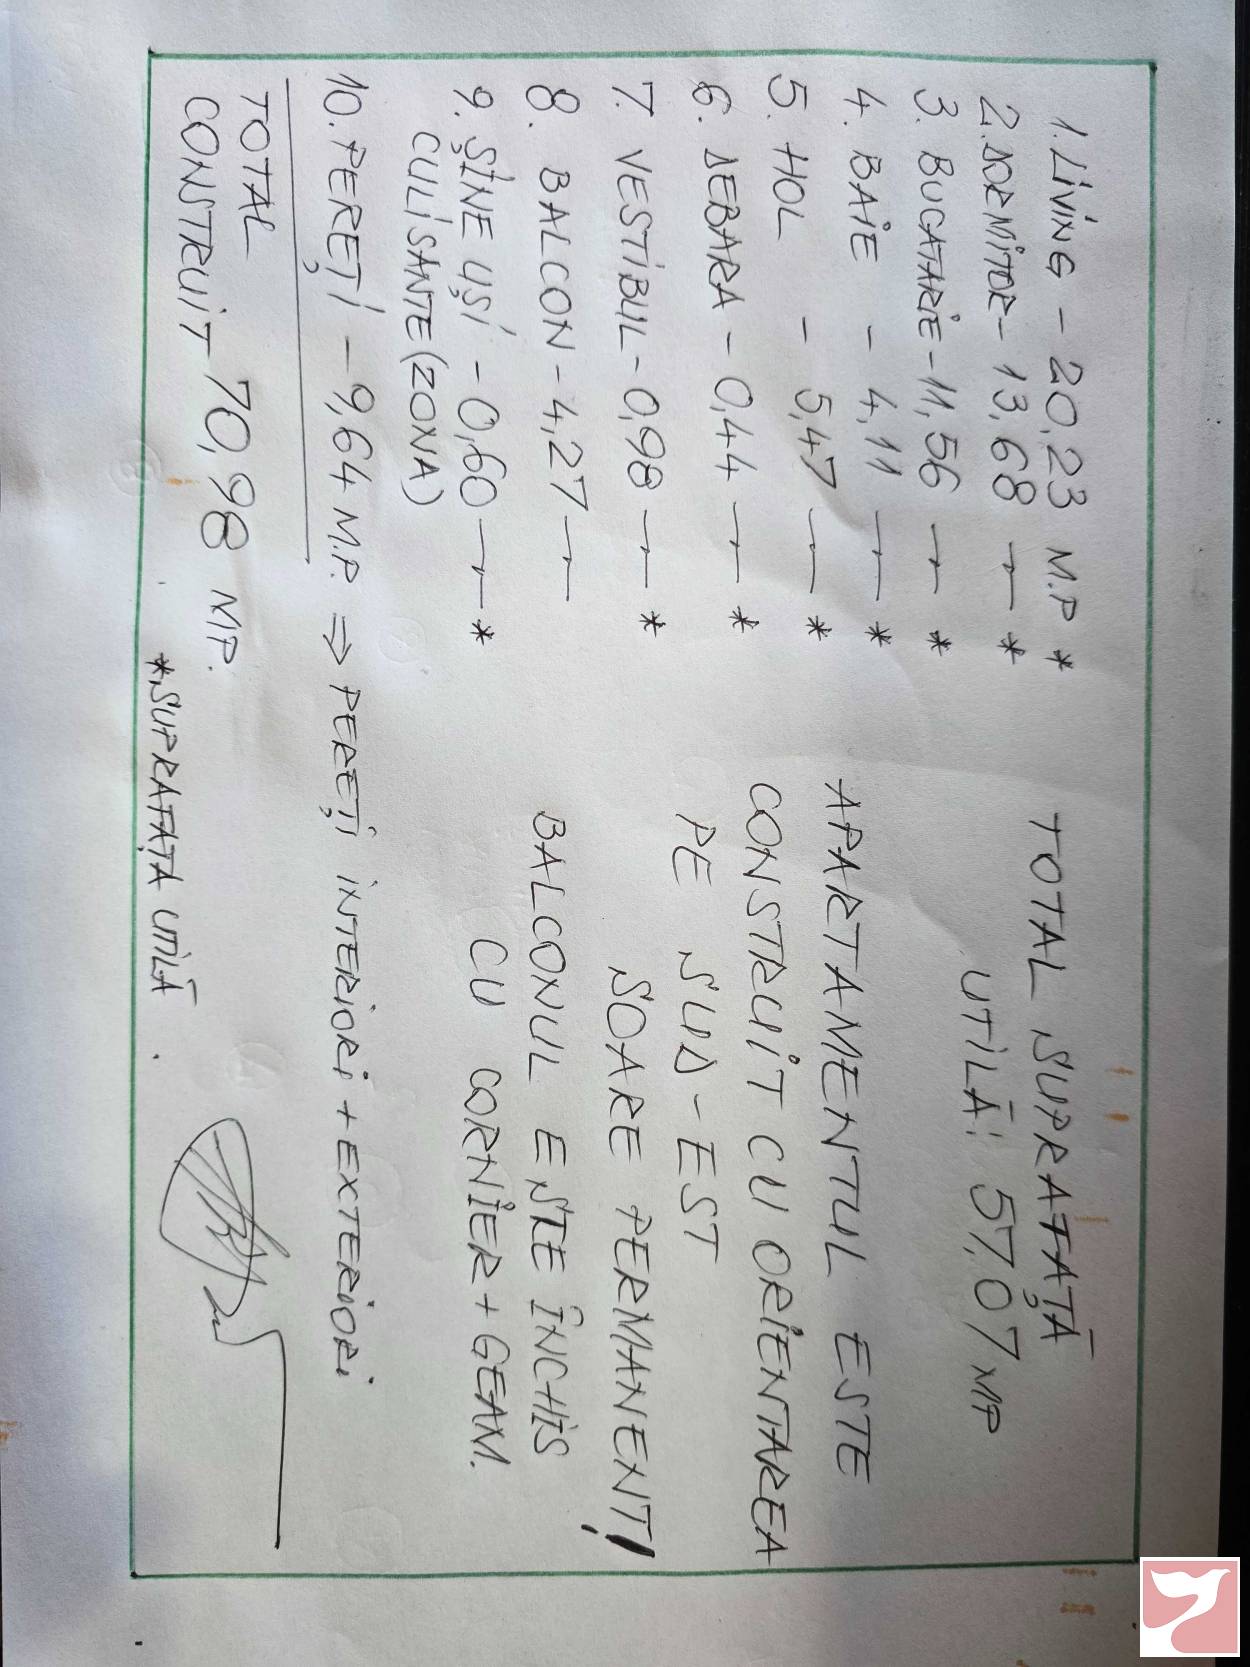 1. LIVING - 20,23 M.P *
2. DORMITOR - 13,68 —〃— *
3. BUCATARIE - 11,56 —〃— *
4. BAIE - 4,11 —〃— *
5. HOL - 5,47 —〃— *
6. DEBARA - 0,44 —〃— *
7. VESTIBUL - 0,98 —〃— *
8. BALCON - 4,27 —〃—
9. ȘINE UȘI - 0,60 —〃— *
CULISANTE (ZONA)
10. PEREȚI - 9,64 M.P. ⇒ PEREȚI INTERIORI + EXTERIORI
TOTAL
CONSTRUIT - 70,98 MP.
*SUPRAFAȚA UTILĂ
TOTAL SUPRAFAȚĂ
UTILĂ: 57,07 MP
APARTAMENTUL ESTE
CONSTRUIT CU ORIENTAREA
PE SUD-EST
SOARE PERMANENT!
BALCONUL ESTE ÎNCHIS
CU CORNIER + GEAM.